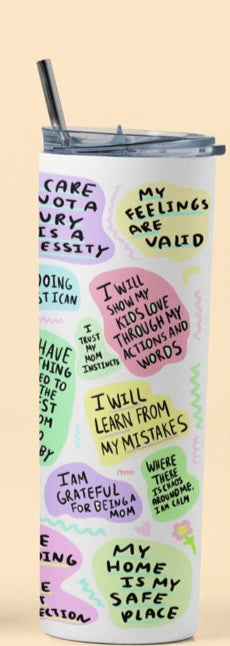 CARE
NOT A
URY
IS A
ESSITY
MY
FEELINGS
ARE
VALID
OING
ST I CAN
I WILL
SHOW MY
KIDS LOVE
THROUGH MY
ACTIONS AND
WORDS
I
TRUST
MY
MOM
INSTINCTS
HAVE
THING
ED TO
THE
ST
OM
BY
I WILL
LEARN FROM
MY MISTAKES
I AM
GRATEFUL
FOR BEING A
MOM
WHERE
THERE
IS CHAOS
AROUND ME,
I AM CALM
E
ING
E
T
ECTION
MY
HOME
IS MY
SAFE
PLACE